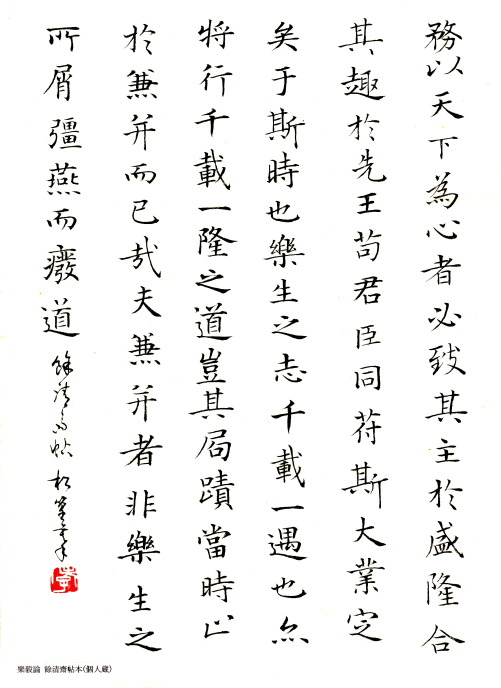 務以天下為心者必致其主於盛隆合
其趣於先王苟君臣同苻斯大業定
矣于斯時也樂生之志千載一遇也亦
將行千載一隆之道豈其局蹟當時止
於兼并而已哉夫兼并者非樂生之
所屑彊燕而癈道
餘清齋帖
樂毅論 餘清齋帖本(個人蔵)